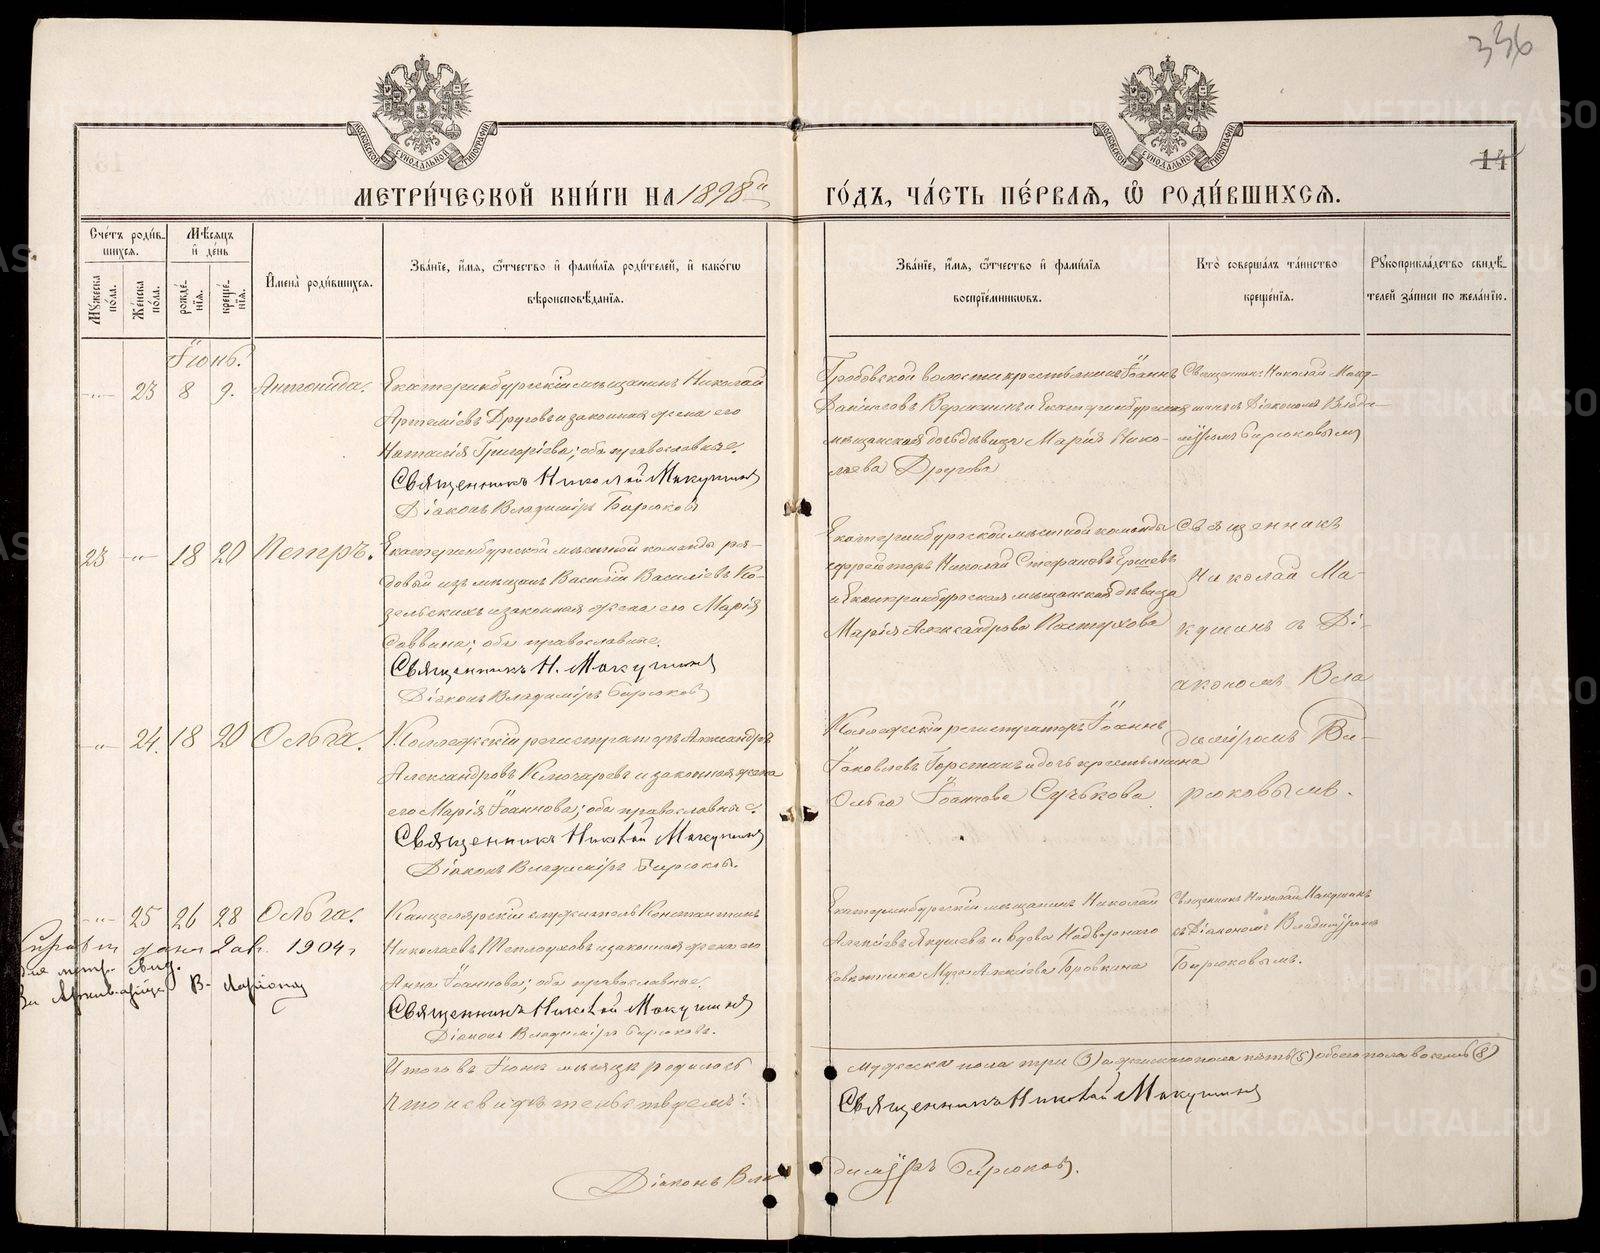 336
МОСКОВСКОЙ СѴНОДАЛЬНОЙ ТИПОГРАФІИ
МОСКОВСКОЙ СѴНОДАЛЬНОЙ ТИПОГРАФІИ
14
МЕТРИ́ЧЕСКОЙ КНИ́ГИ НА 1898й ГО́ДЪ, ЧА́СТЬ ПЕ́РВАЯ, Ѡ РОДИ́ВШИХСЯ.
Сче́тъ роди́в-
шихся.
Му́жеска по́ла.
Же́нска по́ла.
Мѣ́сяцъ и де́нь
рожде́нія.
креще́нія.
Имена̀ роди́вшихся.
Зва́ніе, и́мя, ѻ́тчество и фами́лія роди́телей, и како́гѡ
вѣроисповѣ́данія.
Зва́ніе, и́мя, ѻ́тчество и фами́лія
воспріе́мниковъ.
Кто̀ соверша́лъ та́инство
креще́нія.
Рукоприкла́дство свидѣ́-
телей за́писи по жела́нію.
Іюнь.
-"- 23 8 9. Антонида.
Екатеринбургскій мѣщанинъ Николай
Артеміевъ Друговъ и законная жена его
Наталія Григоріева; оба православные.
Священникъ Николай Макушинъ
Діаконъ Владиміръ Бирюковъ
Гробовской волости крестьянинъ Іоаннъ
Даниловъ Вершининъ и Екатеринбургская
мѣщанская дочь дѣвица Марія Нико-
лаева Другова
Священникъ Николай Маку-
шинъ съ Діакономъ Влади-
міромъ Бирюковымъ
23 -"- 18 20 Петръ.
Екатеринбургской мѣстной команды ря-
довой изъ мѣщанъ Василій Василіевъ Ко-
зельскихъ и законная жена его Марія
Саввина; оба православные.
Священникъ Н. Макушинъ
Діаконъ Владиміръ Бирюковъ
Екатеринбургской мѣстной команды
ефрейторъ Николай Стефановъ Ершевъ
и Екатеринбургская мѣщанская дѣвица
Марія Александрова Пастухова
Священникъ
Николай Ма-
кушинъ съ Ді-
акономъ Вла
диміромъ Би-
рюковымъ.
-"- 24. 18 20 Ольга.
Коллежскій регистраторъ Александръ
Александровъ Ключаревъ и законная жена
его Марія Іоаннова; оба православные.
Священникъ Николай Макушинъ
Діаконъ Владиміръ Бирюковъ.
Коллежскій регистраторъ Іоаннъ
Іаковлевъ Горстинъ и дочь крестьянина
Ольга Іоаннова Сучькова
-"- 25 26 28 Ольга.
Канцелярскій служитель Константинъ
Николаевъ Теплоуховъ и законная жена его
Анна Іоаннова; оба православные.
Священникъ Николай Макушинъ
Діаконъ Владиміръ Бирюковъ.
Екатеринбургскій мѣщанинъ Николай
Алексіевъ Якушевъ и вдова Надворнаго
совѣтника Муза Алексіева Бровкина
Священникъ Николай Макушинъ
съ Діакономъ Владиміромъ
Бирюковымъ.
дана 2 ав. 1904 г
метр. Свид.
В.
Итого въ Іюнѣ мѣсяцѣ родилось мужеска пола три (3) а женскаго пола пять (5) обоего пола восемь (8)
Что и свидѣтельствуемъ: Священникъ Николай Макушинъ
Діаконъ Владиміръ Бирюковъ.
METRIKI.GASO-URAL.RU